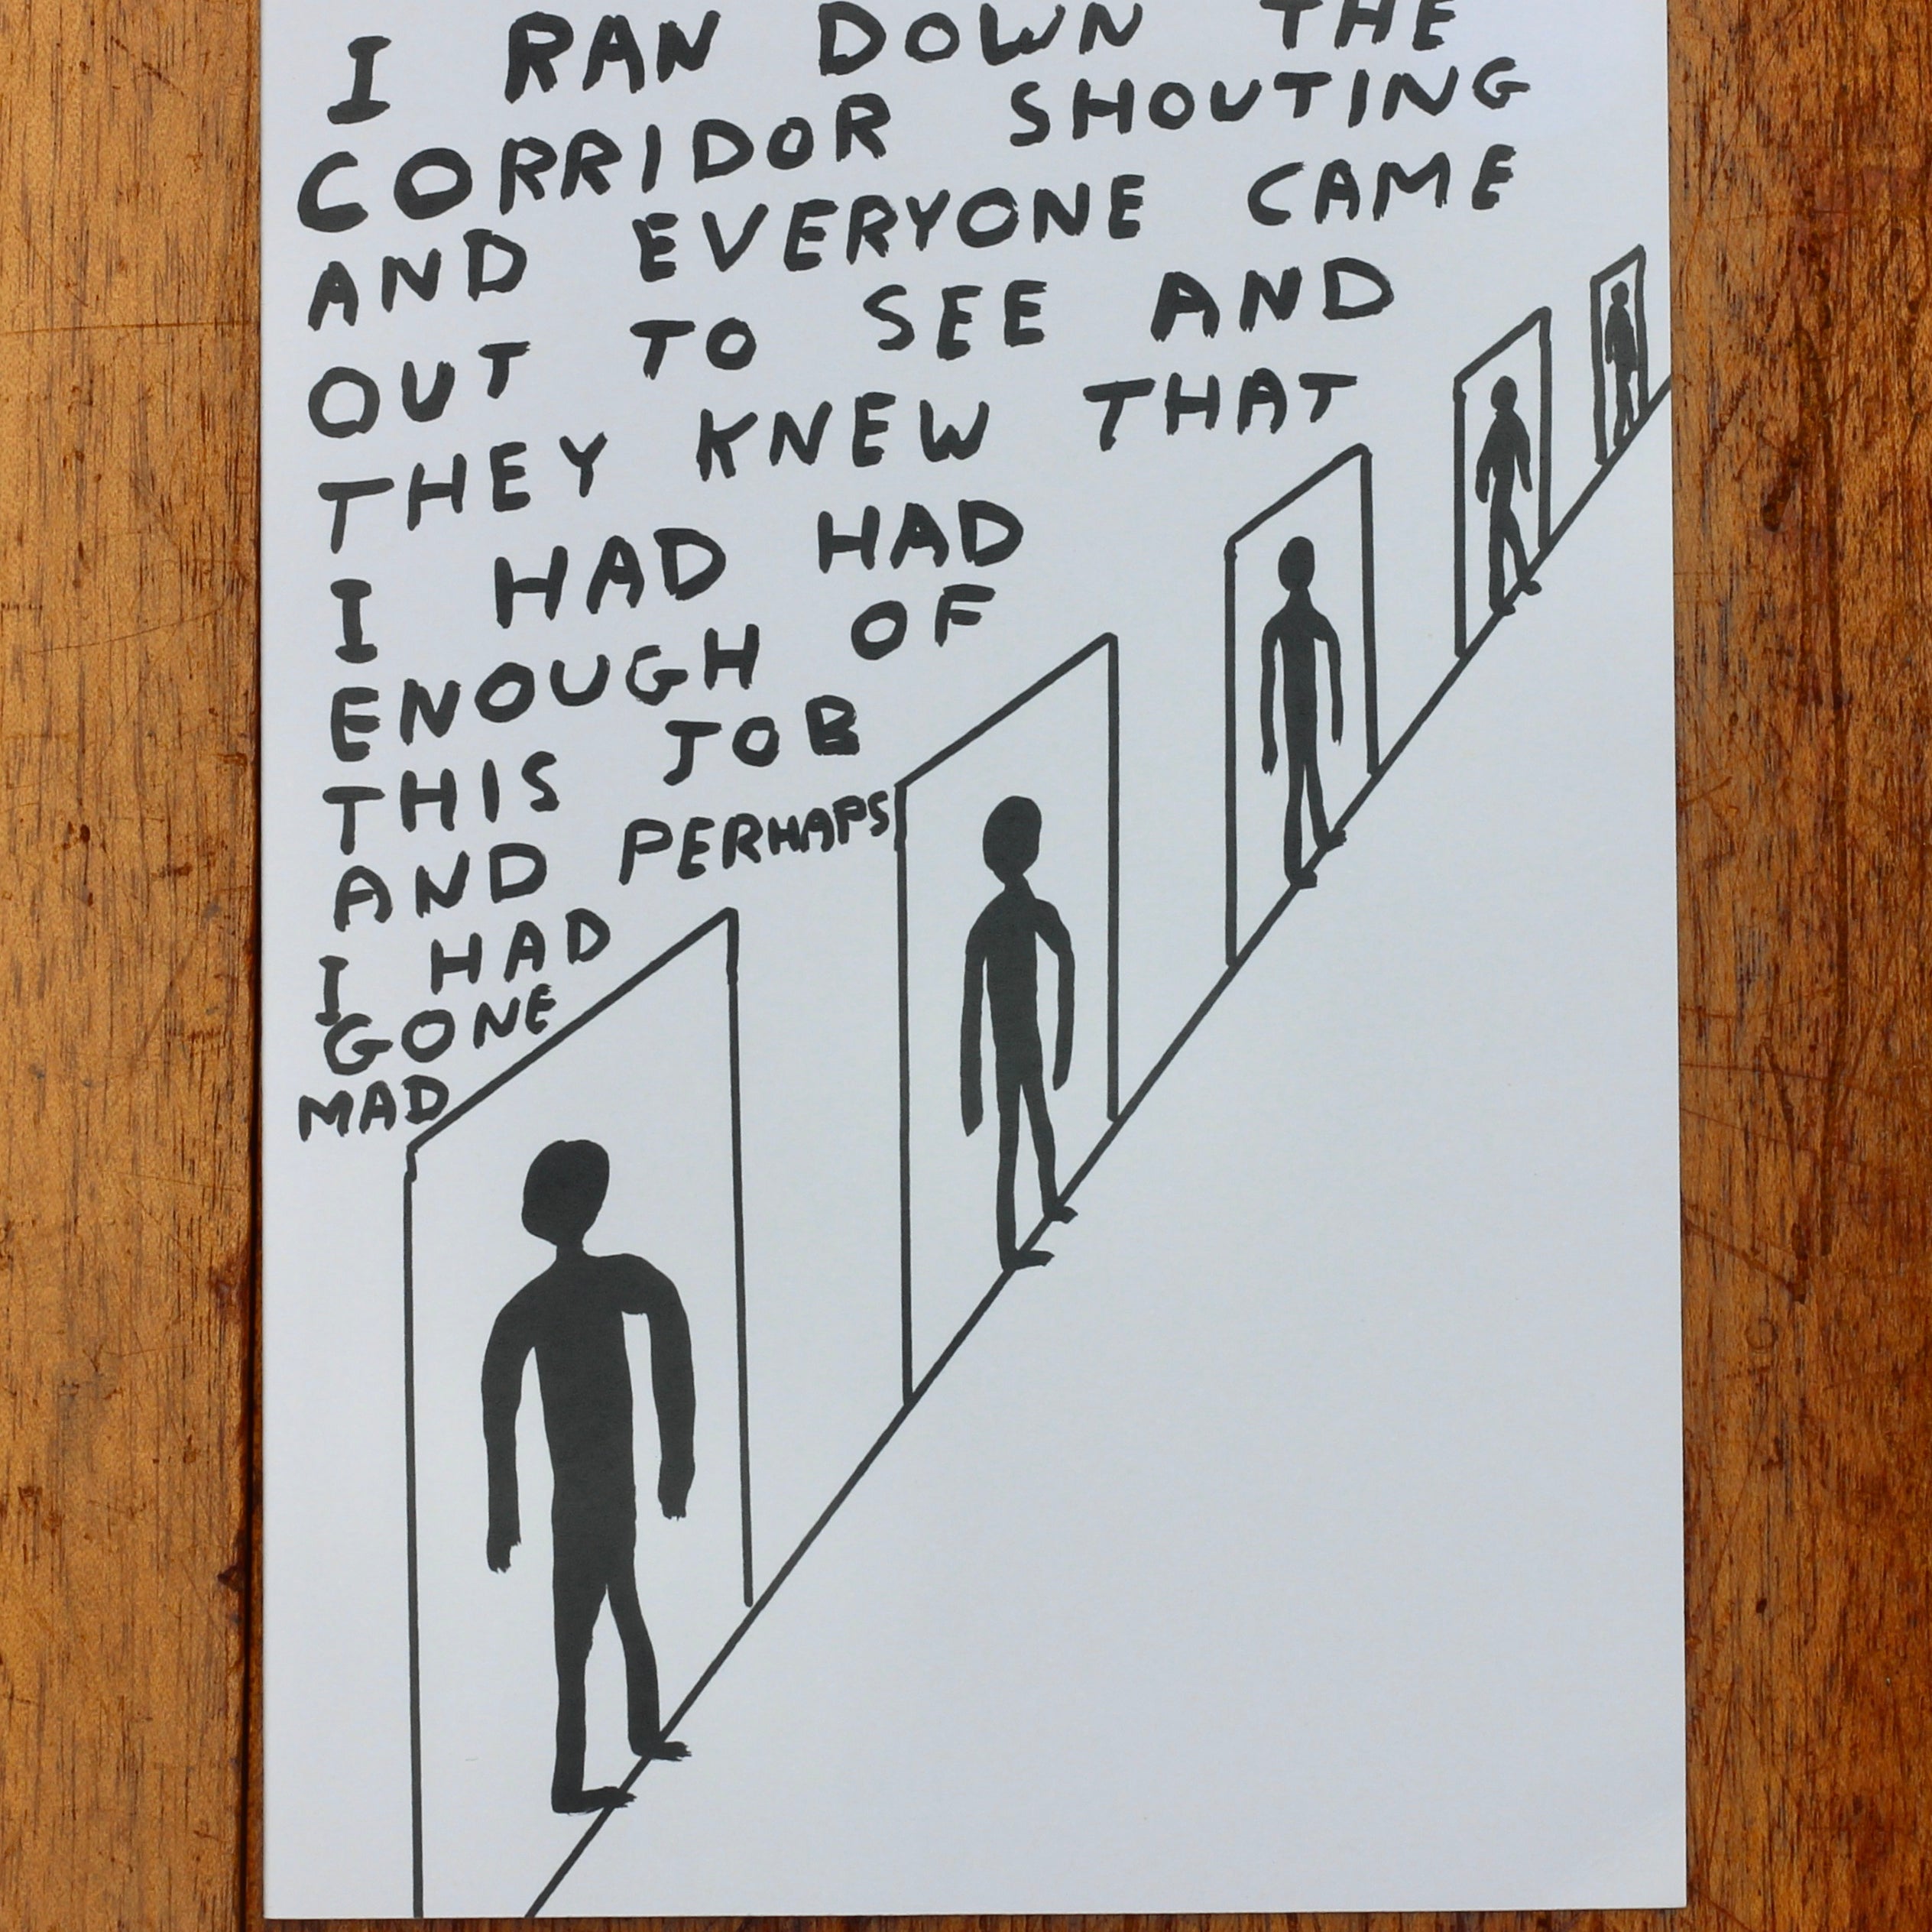 I RAN DOWN THE
CORRIDOR SHOUTING
AND EVERYONE CAME
OUT TO SEE AND
THEY KNEW THAT
I HAD HAD
ENOUGH OF
THIS JOB
AND PERHAPS
I HAD
GONE
MAD